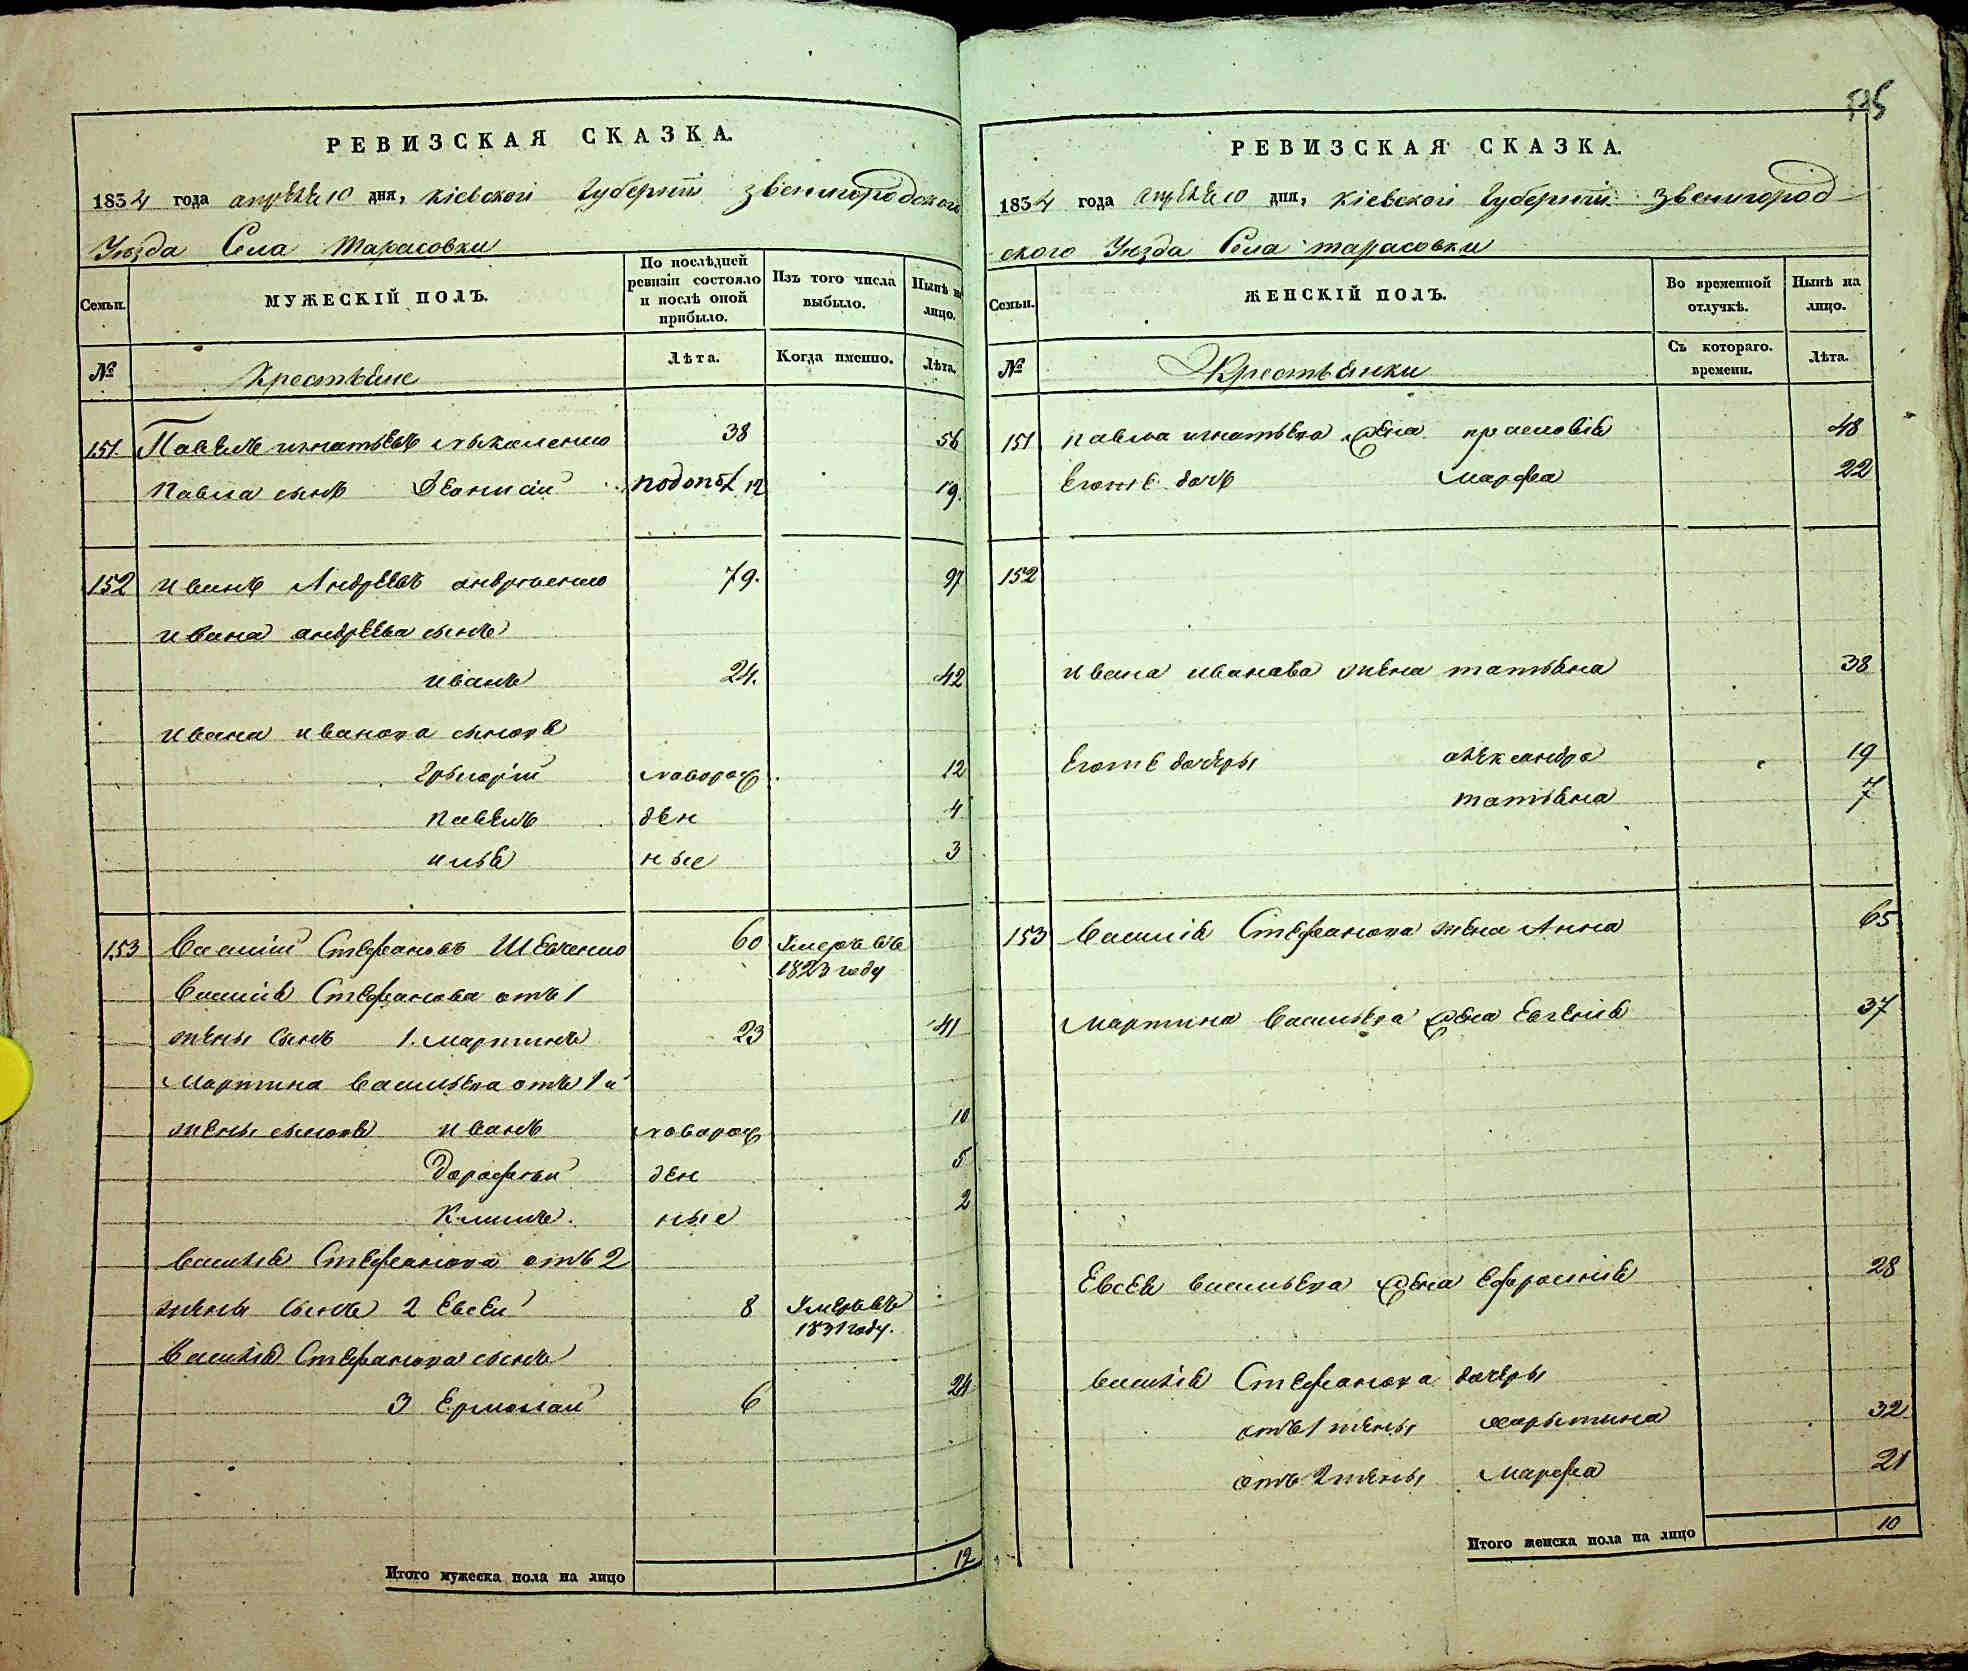 РЕВИЗСКАЯ СКАЗКА.
1834 года апреля 10 дня, Кіевской Губерніи Звенигородского
Уезда Села Тарасовки
Семьи. МУЖЕСКІЙ ПОЛЪ. По послѣдней ревизіи состояло и послѣ оной прибыло. Изъ того числа выбыло. Нынѣ на лицо.
№ Крестьяне Лѣта. Когда именно. Лѣта.
151 Павелъ Игнатьевъ 38 56
Павла сынъ 12 19.
152 Иванъ Андреевъ 79. 97
Ивана Андреева сынъ
Иванъ 24. 42
Ивана Иванова сыновя
Грыгорій новорож 12
Павелъ ден 4
Илья ные 3
153 Василій Стефановъ Шевченко 60 Умеръ въ 1823 году
Василія Стефанова отъ 1
жены сынъ 1. Мартинъ 23 41
Мартина Васильева отъ 1й
жены сыновя Иванъ новорож 10
Дорофей ден 5
Климъ. ные 2
Василія Стефанова отъ 2
жены сынъ 2 Евсей 8 Умеръ въ 1831 году.
Василія Стефанова сынъ
3 Ермолай 6 24
Итого мужеска пола на лицо 12
575
РЕВИЗСКАЯ СКАЗКА.
1834 года апреля 10 дня, Кіевской Губерніи Звенигород
ского Уезда Села Тарасовки
Семьи. ЖЕНСКІЙ ПОЛЪ. Во временной отлучкѣ. Нынѣ на лицо.
№ Крестьянки Съ котораго. времени. Лѣта.
151 Павла Игнатьева жена 48
Егоже дочь Марфа 22
152
Ивана Иванова жена Татьяна 38
Егоже дочеры Александра 19
Татьяна 7
153 Василія Стефанова жена Анна 65
Мартина Васильева жена Евгенія 37
Евсея Васильева жена Ефросинія 28
Василія Стефанова дочеры
отъ 1 жены Харытина 32
отъ 2 жены Марфа 21
Итого женска пола на лицо 10